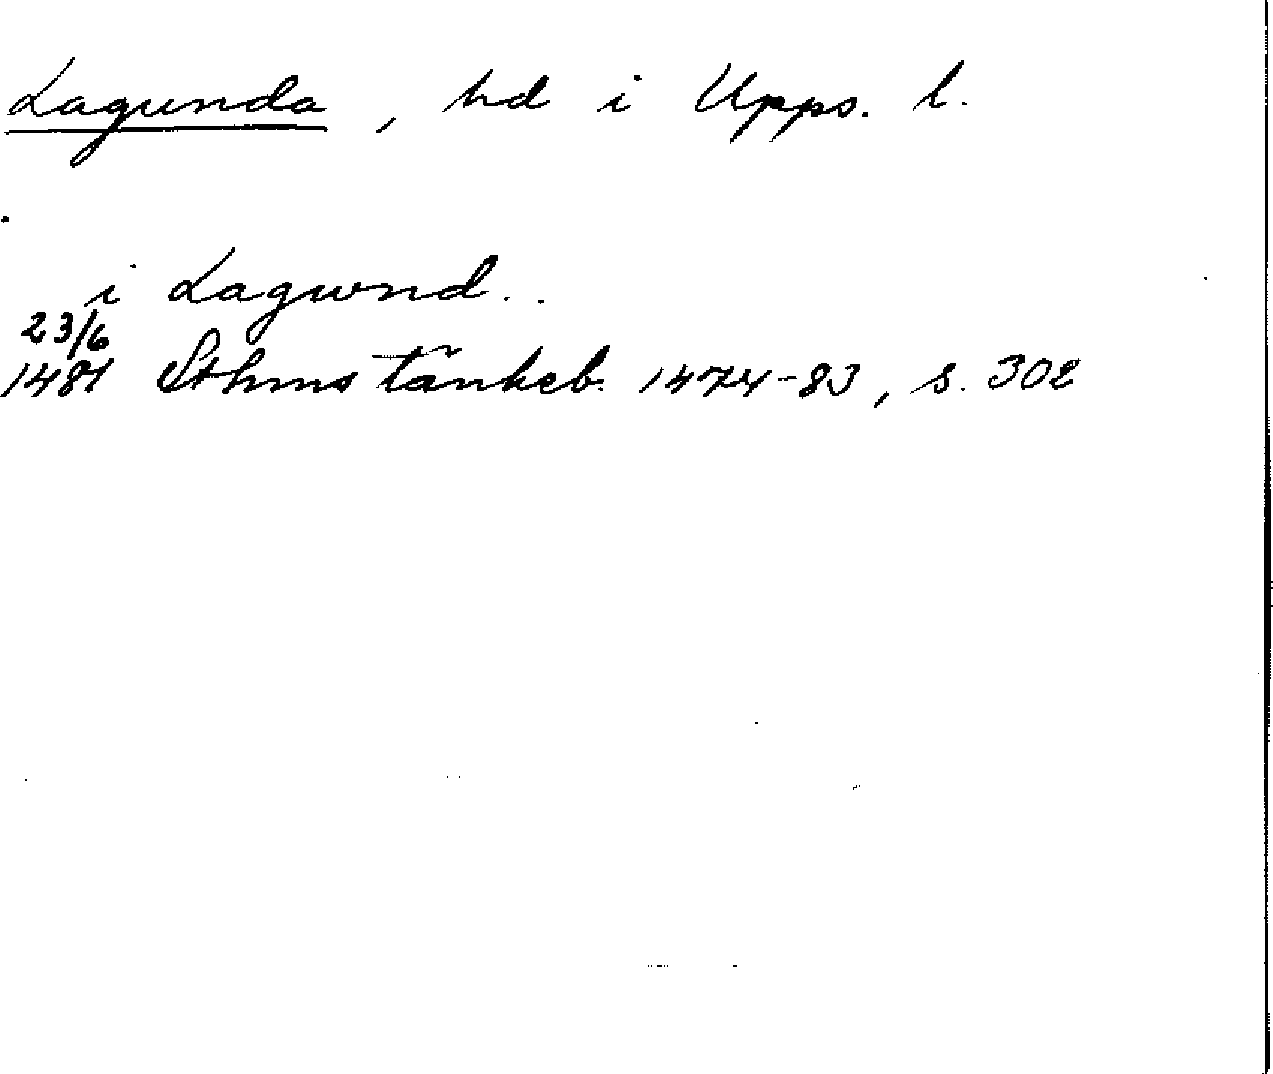 Lagunda, hd i Upps. l.
i Lagwnd..
23/6
1481 Sthms tänkeb. 1474-83, s. 302